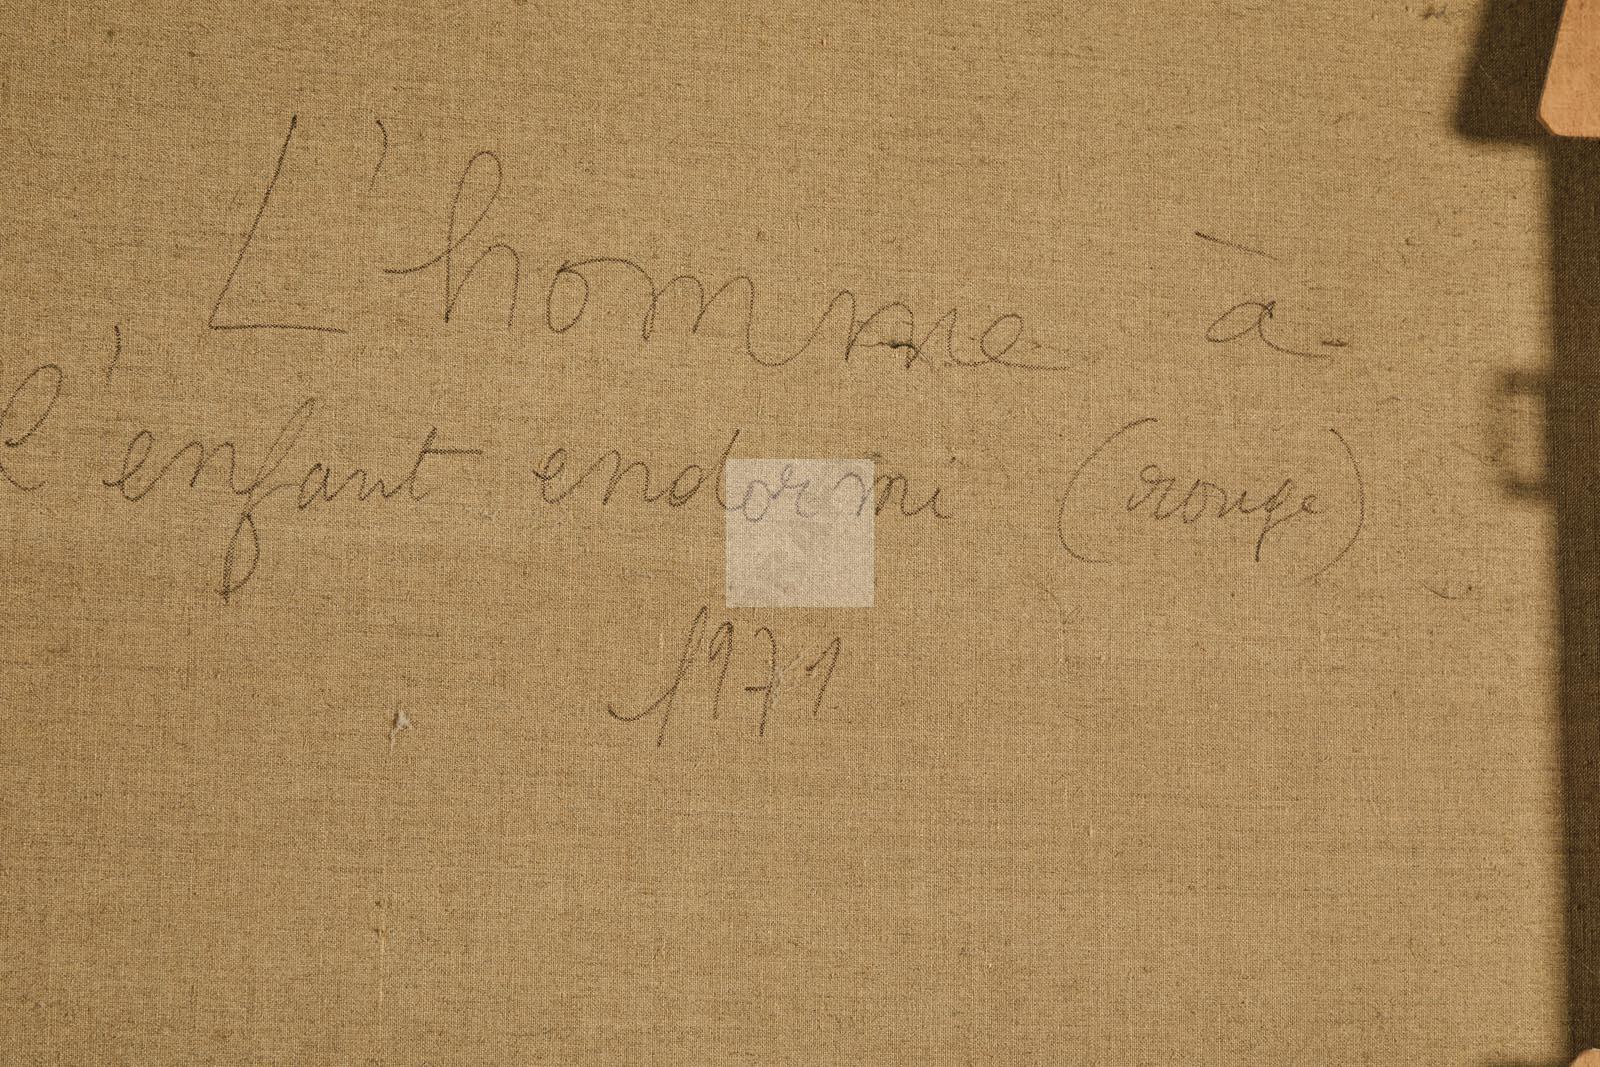 L'homme à
l'enfant endormi (rouge)
1971